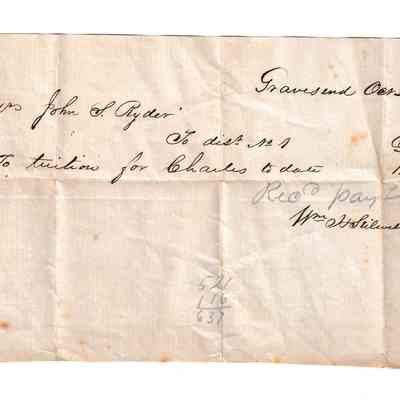 Gravesend Oct
Mrs John S. Ryder
To dist. No 1
To tuition for Charles to date
Rec'd pay't
Wm H Stilwe
521
116
637